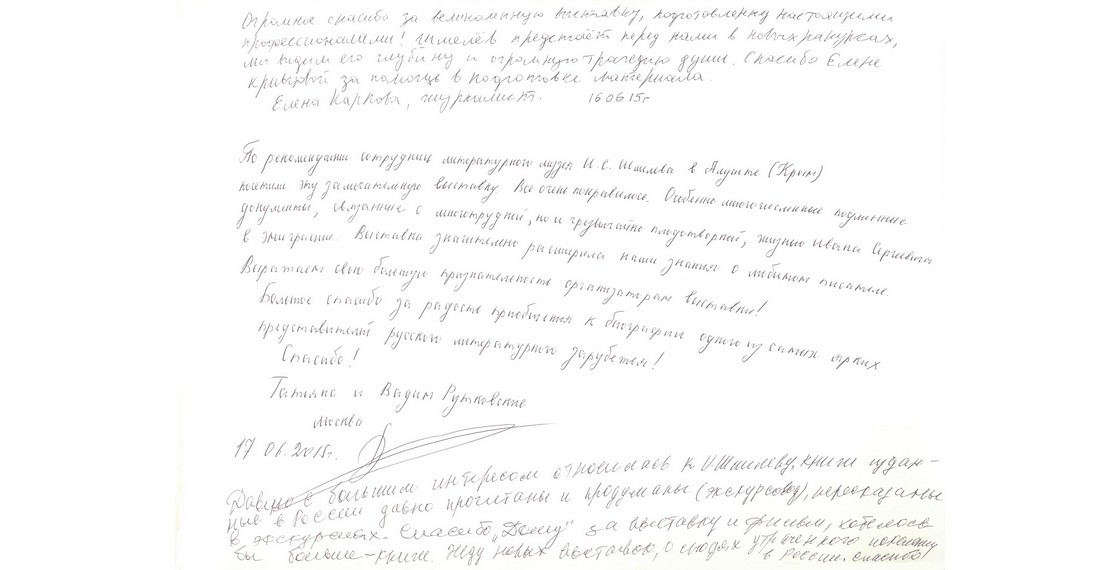 Огромное спасибо за великолепную выставку, подготовленную настоящими
профессионалами! Шмелёв предстаёт перед нами в новых ракурсах,
мы видим его глубину и огромную трагедию души. Спасибо Елене
Кривцовой за помощь в подготовке материала.
Елена Карпова, журналист. 16 06 15г
По рекомендации сотрудниц литературного музея И.С. Шмелева в Алуште (Крым)
посетили эту замечательную выставку. Все очень понравилось. Особенно многочисленные подлинные
документы, связанные с многотрудной, но и чрезвычайно плодотворной, жизнью Ивана Сергеевича
в эмиграции. Выставка значительно расширила наши знания о любимом писателе.
Выражаем свою большую признательность организаторам выставки!
Большое спасибо за радость приобщения к биографии одного из самых ярких
представителей русского литературного зарубежья!
Спасибо!
Татьяна и Вадим Рутковские
Москва
17.06.2015г.
Давно с большим интересом относилась к И. Шмелеву, книги издан-
ные в России давно прочитаны и продуманы (экскурсовод), пересказаны
в экскурсиях. Спасибо „Дому" за выставку и фильм, хотелось
бы больше – книге. Жду новых выставок, о людях утраченного
в России. Спасибо!